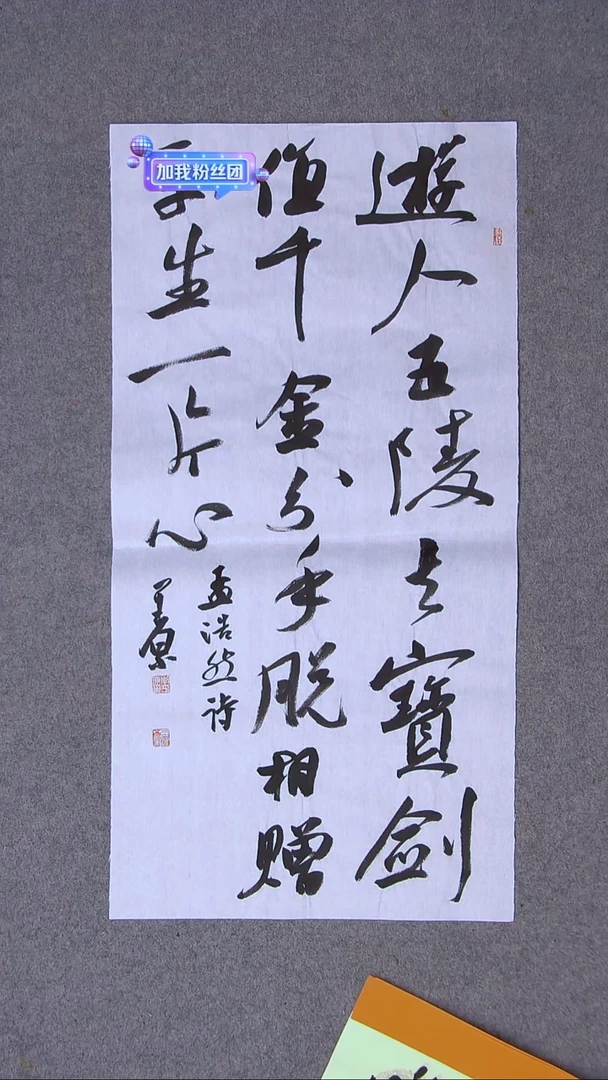 遊人五陵去寶劍
值千金分手脱相赠
生一片心
孟浩然诗
加我粉丝团